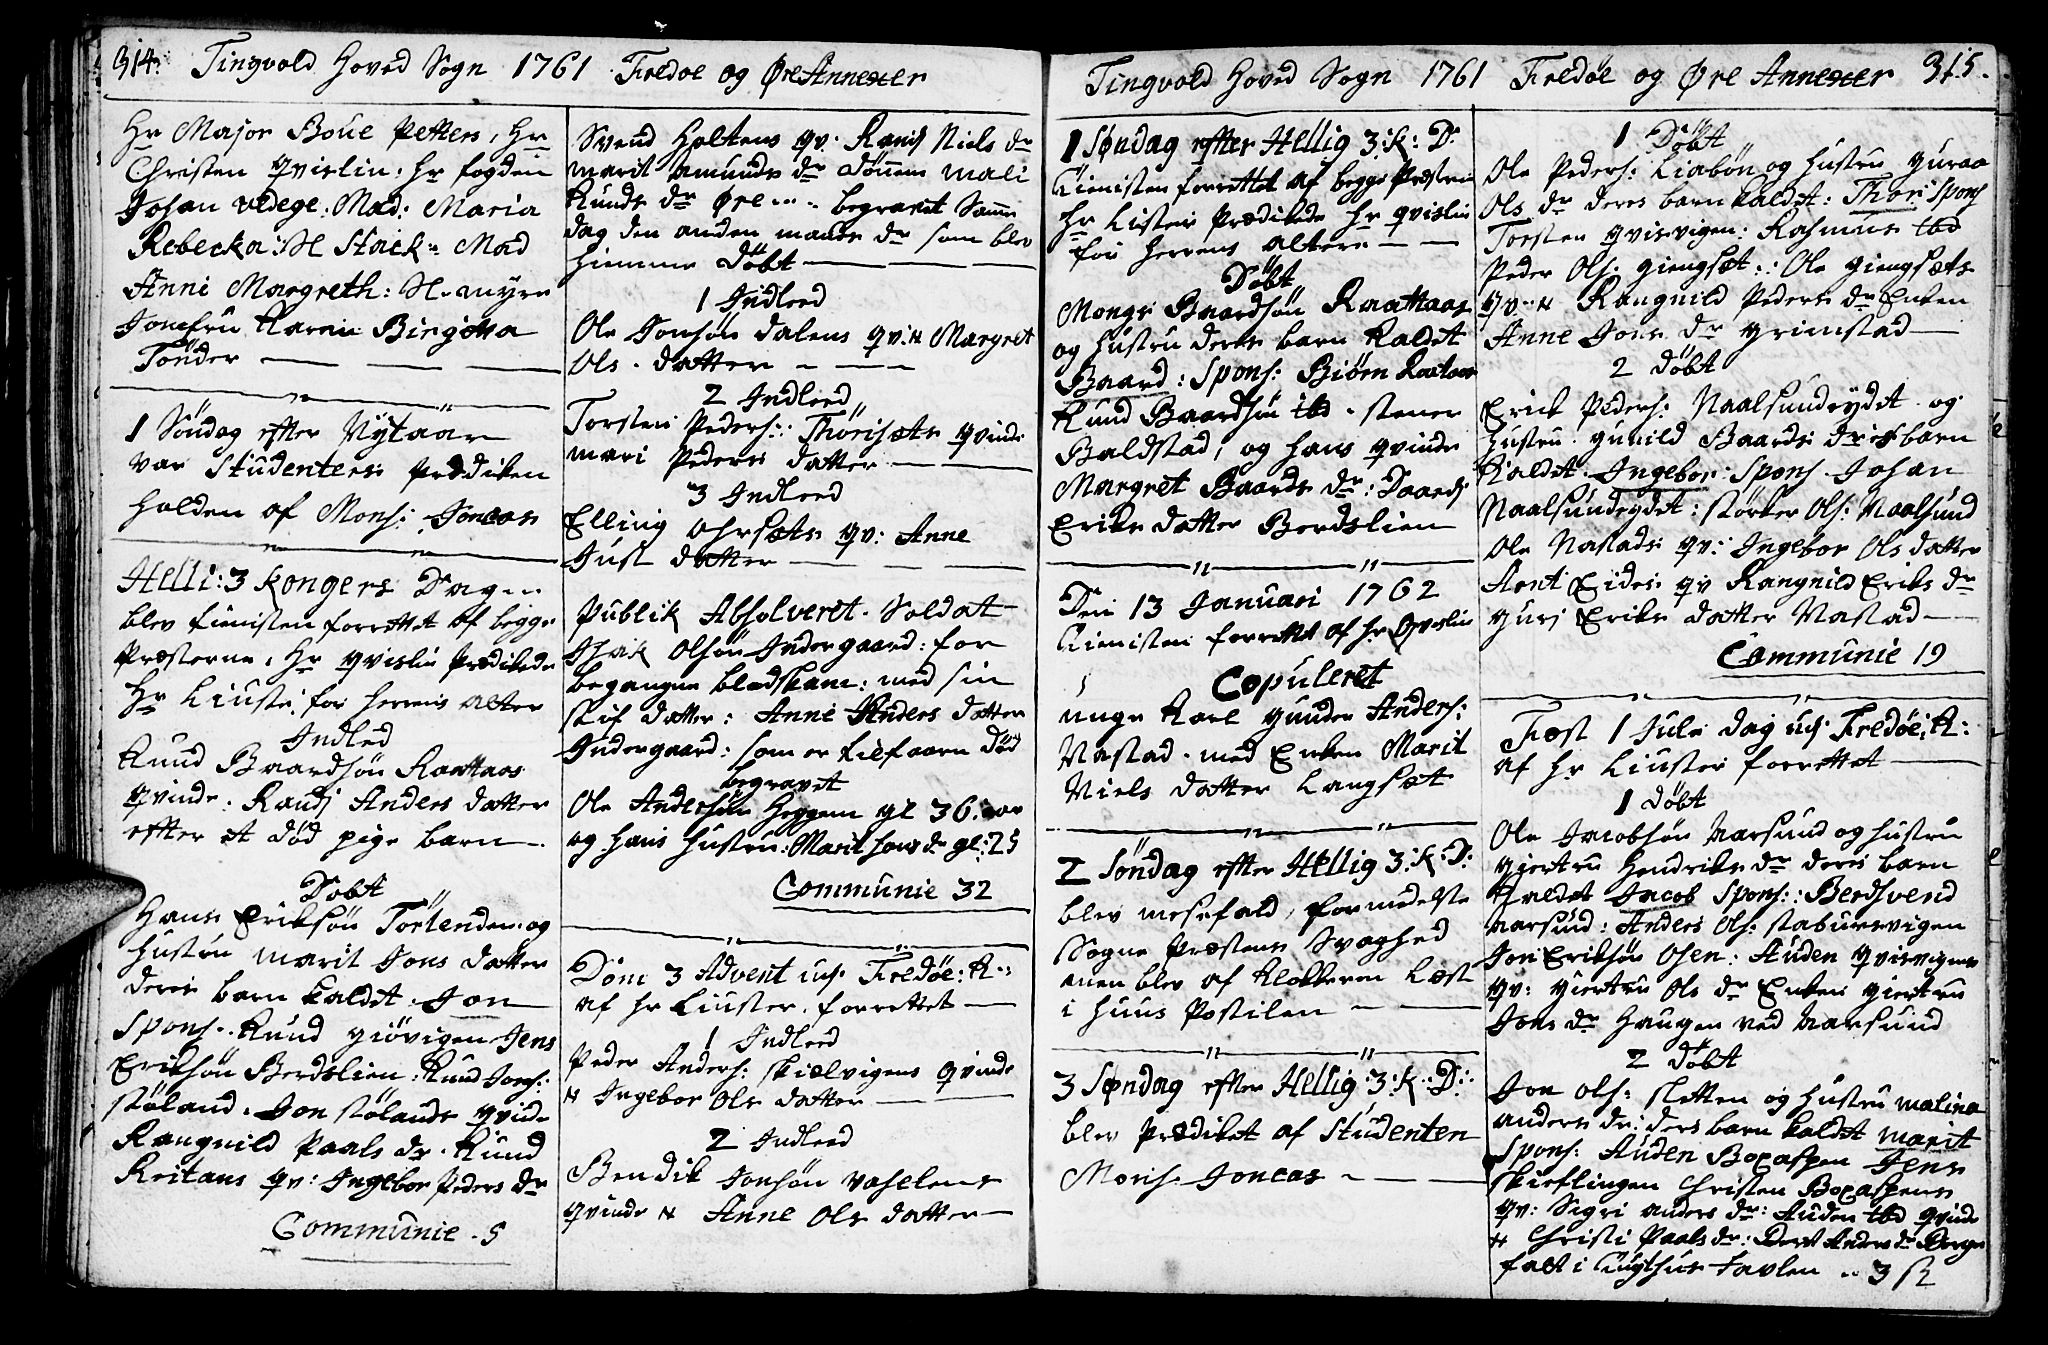 314. Tingvold Hoved Sogn 1761 Fredøe og Øre Annexer
Hr Major Boue Petters, Hr
Christen Qvislin: Hr fogden
Johan vedege: Mad: Maria
Rebecka: Sl Stack: Mad
Anni Margreth: Sl. myre
Jomfru Karen Birgitta
Tönder
1 Söndag efter Nytaar
var Studentens Prediken
holden af Mons: Joncas
Helli: 3 kongers Dagen
blev tienisten forrettet af begge
Præsterne, Hr Qvislin Predikede
Hr Liuster for herrens alter
Indled
Knud Baardsön Raattaas
qvinde: Randj Anders datter
efter et död pige barn
Döbt
Hans Eriksön Törlenden og
hustru marit Jons datter
deres barn kaldet Jon
Spons. Knud Giövigen Jens
Eriksön Berdslien: Knud Jons:
stöland. Jon stölands qvinde
Rangnild Paals dr. Knud
Reitans qv: Ingebor Peders dr
Communie 5
Svend Holtens qv. Randj Niels dr
marit Amunds dr Dönnem mali
Knuds dr Øre begravet Samme
dag den anden mands dr som blev
hiemme döbt
1 Indleed
Ole Jonsön dalens qv: Margret
Ols. datter
2 Indleed
Torsten Peders: Thörisets qvinde
mari Peders datter
3 Indleed
Elling ohrsets qv: Anne
Just datter
Publik Absolveret Soldat
Isak Olsön Indergaard: for
begangne blodskam: med sin
stif datter: Anne Anders datter
Indergaard: som er tilforn död
begravet
Ole Andersön Heggem gl 36: aar
og hans hustru: Marit Jons dr gl: 25
Communie 32
Dom 3 Advent udj Fredöe: K:
af hr Liuster forrettet
1 Indleed
Peder Anders: skielvigens qvinde
Ingebor Ols datter
2 Indleed
Bendik Jonsön vaslens
qvinde Anne Ols datter
Tingvold Hoved Sogn 1761 Fredöe og Øre Annexer 315.
1 Söndag efter Hellig 3: K: D:
tienisten forrettet af begge Præsten
hr Lister Prædikede hr qvislin
for herrens alter
Döbt
Mongs Baardsön Raattaas
og hustru deres barn kaldet
Baard: Spons: Biörn Raataas
Knud Baardsön ibd. stener
Baldstad, og hans qvinde
Margret Baards dr: Baardj
Eriks datter Berdslien
Den 13 Januari 1762
tienisten forrettet af hr Qvislin
Copuleret
unge Karl Gunder Anders:
Nastad. med Enken Marit
Niels datter Langset
2 Söndag efter Hellig 3: K: D:
blev mesefald, formedelst
Sogne Præstens Svaghed
men blev af klokkeren læst
i huus Postilen
3 Söndag efter Hellig: 3: K: D:
blev Prædiket af Studenten
Mons. Joncas
1 Döbt
Ole Peders: Liabön og hustru guraa
Ols dr deres barn kaldet: Thor: Spons
Torsten Qvisvigen: Rasmus ibd
Peder Ols: giengset: Ole giengsets
qv: Rangnild Peders dr Enken
Anne Jons dr grimstad
2 döbt
Erik Peders: Naalsundeydet og
hustru gunild Baards dr barn
kaldet. Ingebor: Spons. Johan
Naalsundeydet: störker Ols: Naalsund
Ole Nastads qv: Ingebor Ols datter
Arnt Eides: qv Rangnild Eriks dr
Gurj Eriks datter Nastad
Communie 19
Fest 1 Jule dag udj Fredöe: K:
af hr Liuster forrettet
1 döbt
Ole Jacobsön Aarsund og hustru
giertru Hendriks dr deres barn
kaldet Jacob Spons: Berdsvend
aarsund: Anders Ols: stabursvigen
Jon Eriksön Osen: Auden qvisvigens
qv: giertru Ols dr Enken giertru
Jons dr Haugen ved Aarsund
2 döbt
Jon Ols: sletten og hustru malina
anders dr: ders barn kaldet marit
Spons: Auden Boxaspen Jens
skieflingen Christen Boxaspens
qv: Sigri anders dr: Auden ibd qvinde
Christi Paals dr: Berit Anders dr Berge
falt i tugthus tavlen 3 ß